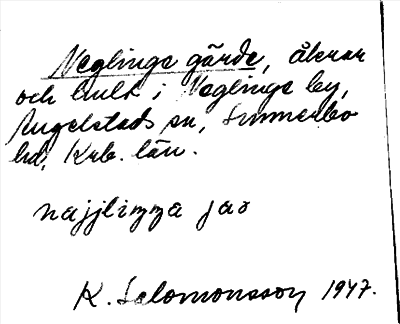 Neglinge gärde, åkrar
och hult i Neglinge by,
Angelstads sn, Sunnerbo
hd, Krb. län.
K. Salomonsson 1947.